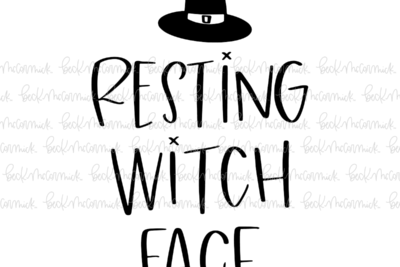 RESTING
WITCH
FACE